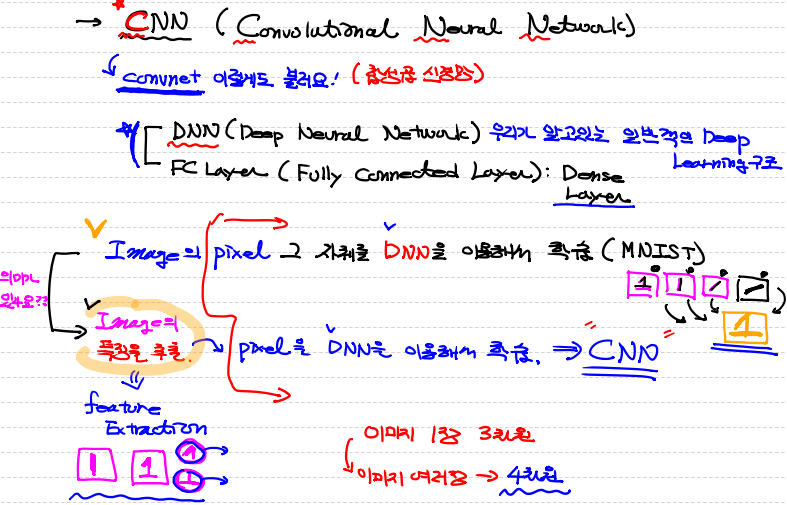 → CNN (Convolutional Neural Network)
convnet 이렇게도 불러요! (합성곱 신경망)
DNN (Deep Neural Network) 우리가 알고있는 일반적인 Deep
Learning 구조
FC Layer (Fully Connected Layer): Dense
Layer
Image의 pixel 그 자체를 DNN을 이용해서 학습 (MNIST)
의미가
있나요??
1 1 / /
1
Image의
특징을 추출. pixel을 DNN을 이용해서 학습. ⇒ "CNN"
feature
Extraction
1 1 1
1
이미지 1장 3차원
이미지 여러장 → 4차원